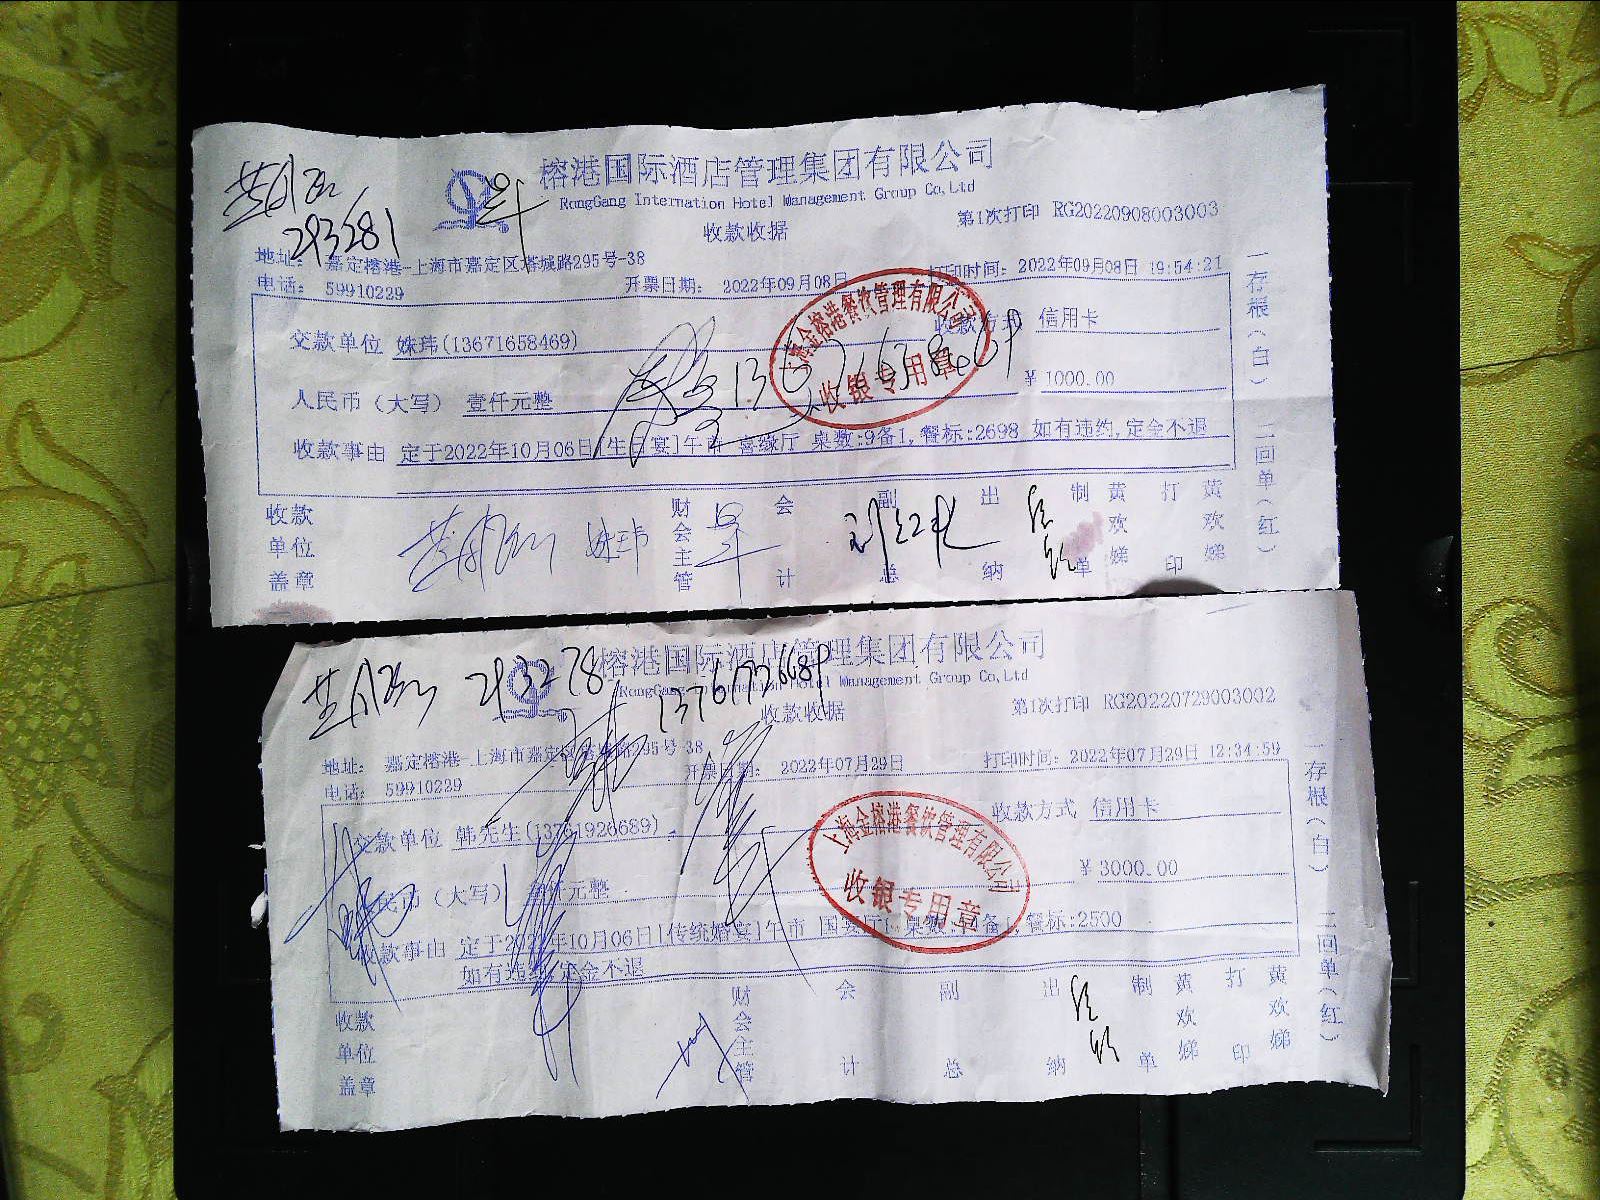 榕港国际酒店管理集团有限公司
RongGang Internation Hotel Management Group Co,Ltd
293281
收款收据
第1次打印 RG20220908003003
地址: 嘉定榕港-上海市嘉定区塔城路295号-38
电话: 59910229
开票日期: 2022年09月08日
打印时间: 2022年09月08日 19:54:21
交款单位 姝玮(13671658469)
收款方式 信用卡
人民币(大写) 壹仟元整
¥ 1000.00
收款事由 定于2022年10月06日[生日宴]午市 喜缘厅 桌数:9备1,餐标:2698 如有违约,定金不退
上海金榕港餐饮管理有限公司
收银专用章
一存根(白) 二回单(红)
收款单位盖章 姝玮
财会主管
会计
副总
出纳
制单 黄欢娣
打印 黄欢娣
榕港国际酒店管理集团有限公司
RongGang Internation Hotel Management Group Co,Ltd
293278
收款收据
第1次打印 RG20220729003002
地址: 嘉定榕港-上海市嘉定区塔城路295号-38
电话: 59910229
开票日期: 2022年07月29日
打印时间: 2022年07月29日 12:34:59
交款单位 韩先生(13761926689)
收款方式 信用卡
人民币(大写) 仟元整
¥ 3000.00
收款事由 定于2022年10月06日[传统婚宴]午市 国宴厅 桌数: 备1,餐标:2500
如有违约,定金不退
上海金榕港餐饮管理有限公司
收银专用章
一存根(白) 二回单(红)
收款单位盖章
财会主管
会计
副总
出纳
制单 黄欢娣
打印 黄欢娣